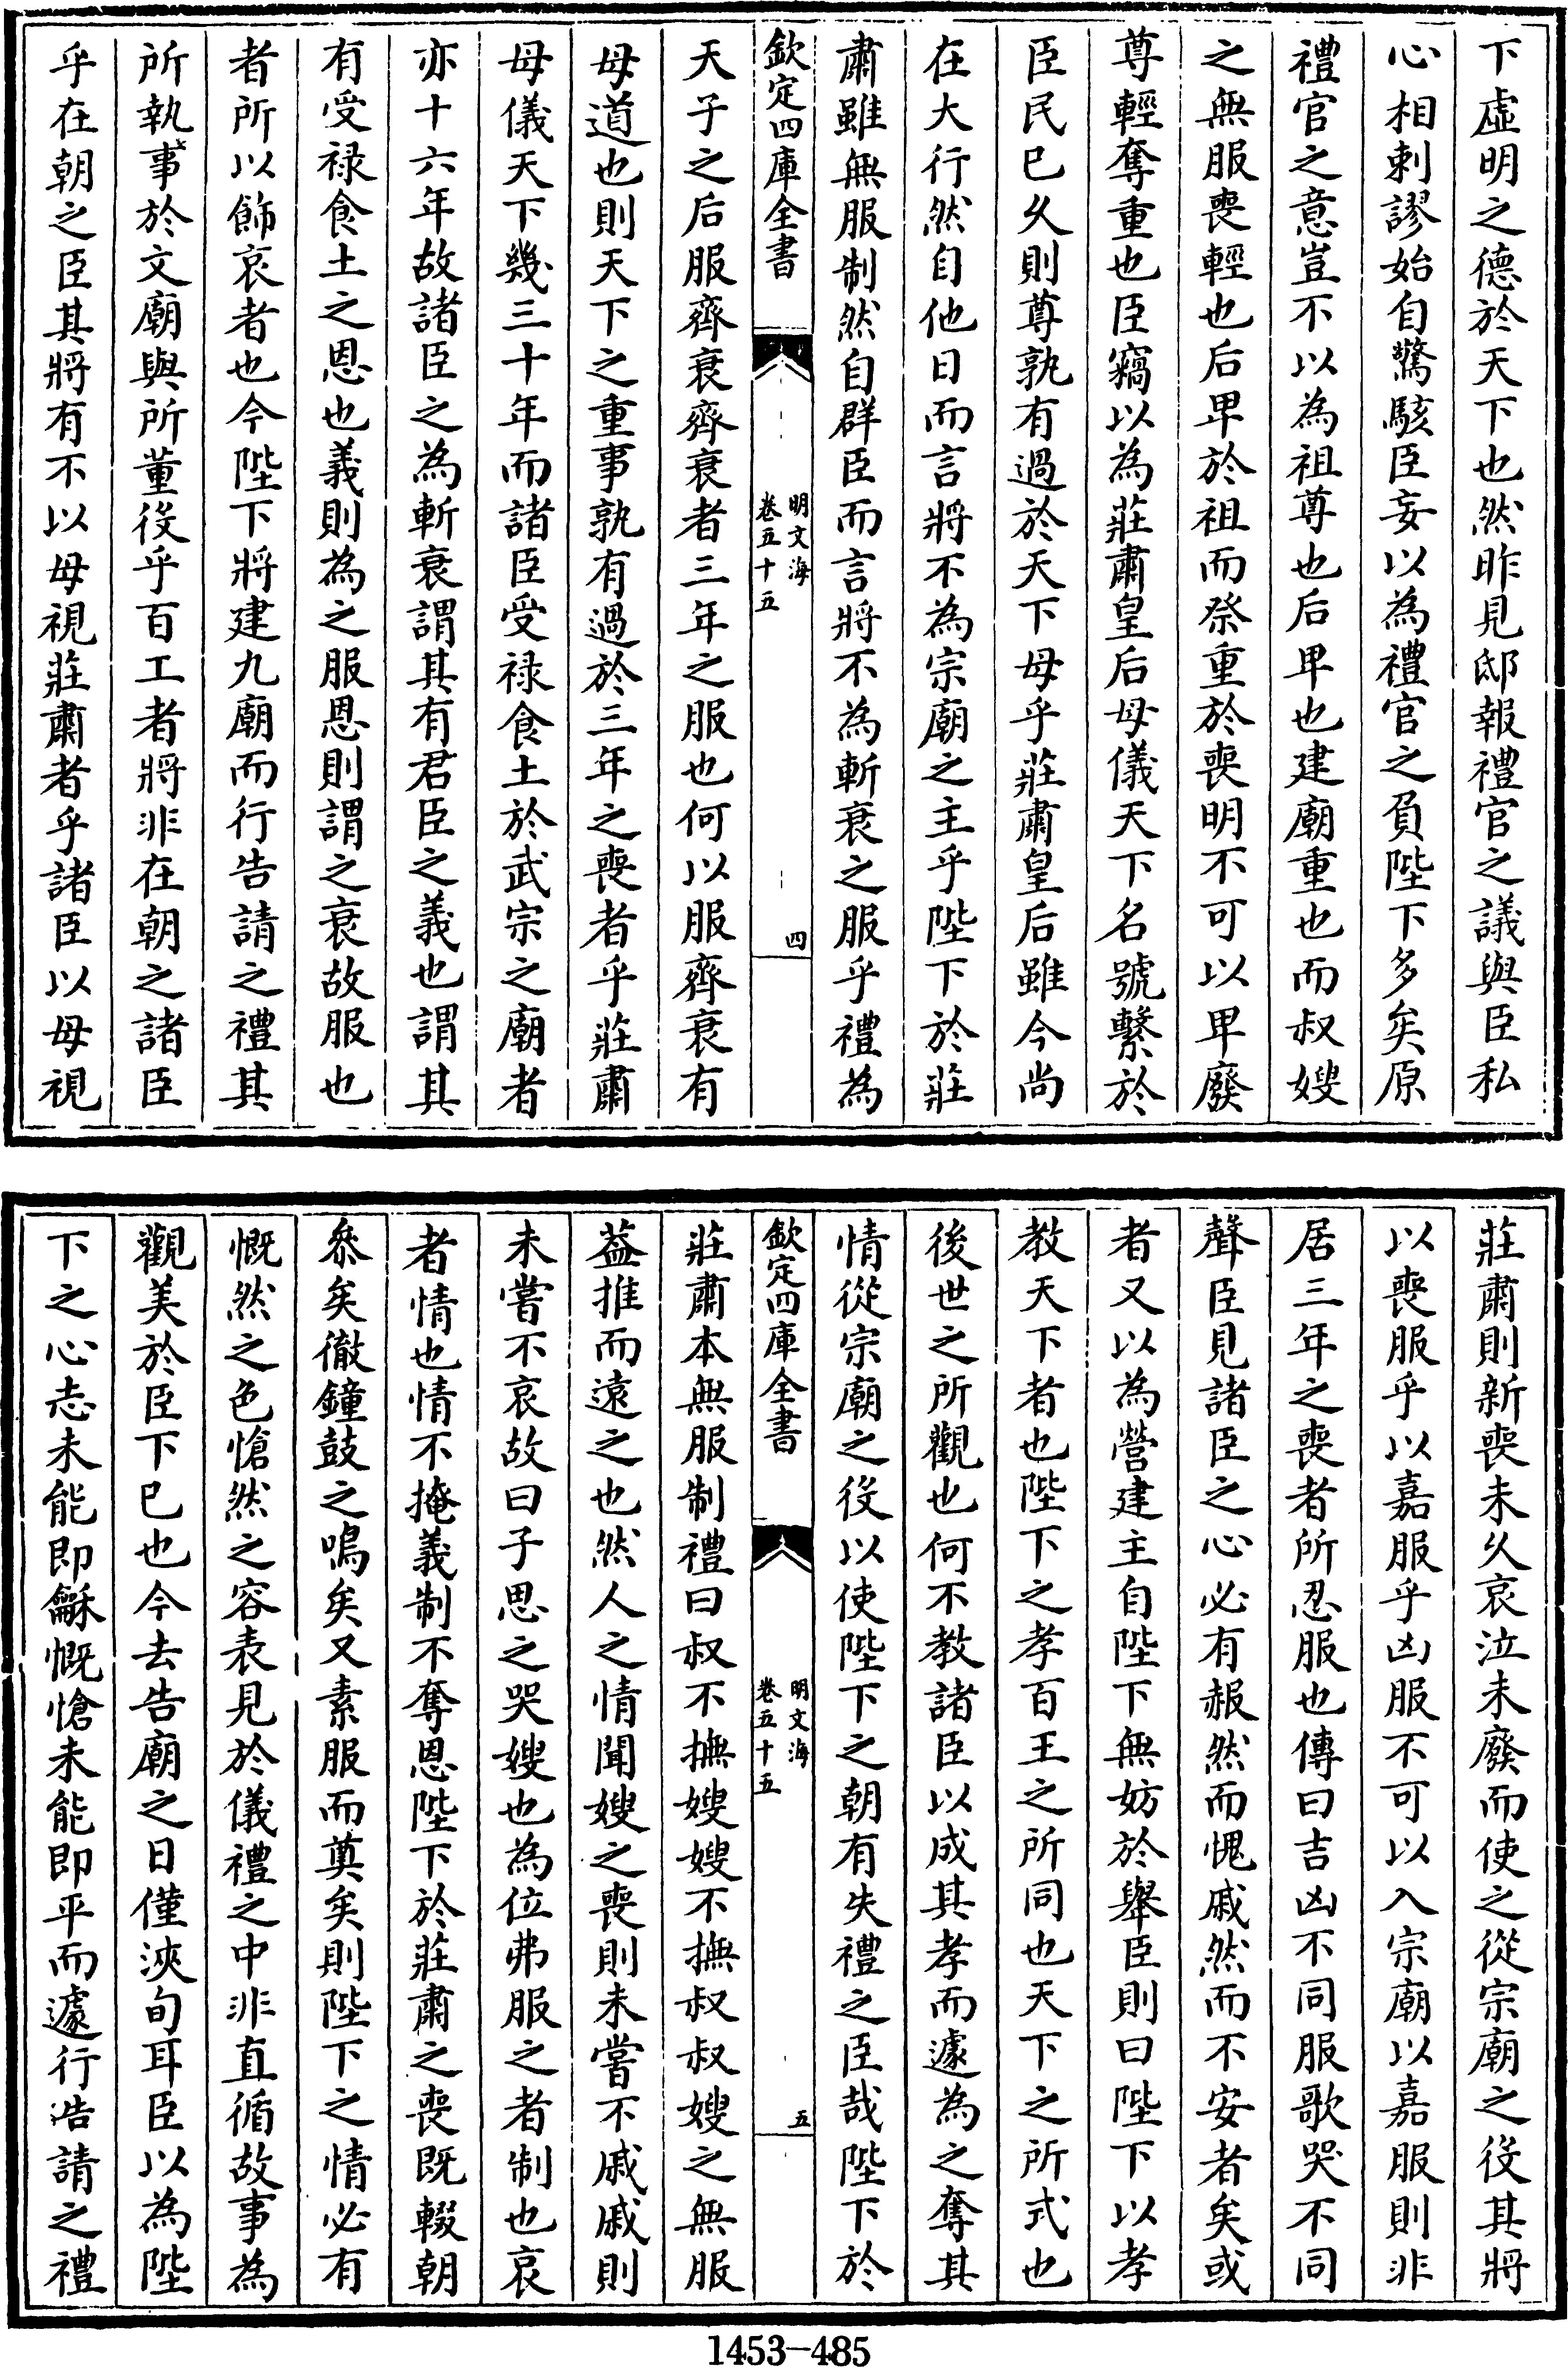 下虛明之德於天下也然昨見邸報禮官之議與臣私
心相剌謬始自驚駭臣妄以為禮官之負陛下多矣原
禮官之意豈不以為祖尊也后卑也建廟重也而叔嫂
之無服喪輕也后卑於祖而祭重於喪明不可以卑廢
尊輕奪重也臣竊以為莊肅皇后母儀天下名號繫於
臣民已久則尊孰有過於天下母乎莊肅皇后雖今尚
在大行然自他日而言將不為宗廟之主乎陛下於莊
肅雖無服制然自群臣而言將不為斬衰之服乎禮為
欽定四庫全書
明文海
卷五十五
四
天子之后服齊衰齊衰者三年之服也何以服齊衰有
母道也則天下之重事孰有過於三年之喪者乎莊肅
母儀天下幾三十年而諸臣受禄食土於武宗之廟者
亦十六年故諸臣之為斬衰謂其有君臣之義也謂其
有受禄食土之恩也義則為之服恩則謂之衰故服也
者所以飾哀者也今陛下將建九廟而行告請之禮其
所執事於文廟與所董役乎百工者將非在朝之諸臣
乎在朝之臣其將有不以母視莊肅者乎諸臣以母視
莊肅則新喪未久哀泣未廢而使之從宗廟之役其將
以喪服乎以嘉服乎凶服不可以入宗廟以嘉服則非
居三年之喪者所忍服也傳曰吉凶不同服歌哭不同
聲臣見諸臣之心必有赧然而愧戚然而不安者矣或
者又以為營建主自陛下無妨於舉臣則曰陛下以孝
教天下者也陛下之孝百王之所同也天下之所式也
後世之所觀也何不教諸臣以成其孝而遽為之奪其
情從宗廟之役以使陛下之朝有失禮之臣哉陛下於
欽定四庫全書
明文海
卷五十五
五
莊肅本無服制禮曰叔不撫嫂嫂不撫叔叔嫂之無服
葢推而遠之也然人之情聞嫂之喪則未嘗不戚戚則
未嘗不哀故曰子思之哭嫂也為位弗服之者制也哀
者情也情不掩義制不奪恩陛下於莊肅之喪既輟朝
叅矣徹鐘鼓之鳴矣又素服而奠矣則陛下之情必有
慨然之色愴然之容表見於儀禮之中非直循故事為
觀美於臣下巳也今去告廟之日僅浹旬耳臣以為陛
下之心志未能即龢慨愴未能即平而遽行浩請之禮
1453-485